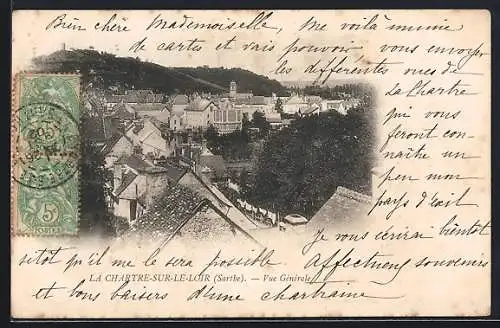 Bien chère Mademoiselle, Me voilà munie
de cartes et vais pouvoir vous envoyer
les différentes vues de
La Chartre
qui vous
feront con-
naître un
peu mon
pays d'exil
Je vous écrirai bientôt
sitôt qu'il me sera possible
Affectueux souvenirs
et bons baisers d'une chartraine
LA CHARTRE-SUR-LE-LOIR (Sarthe). — Vue Générale
5